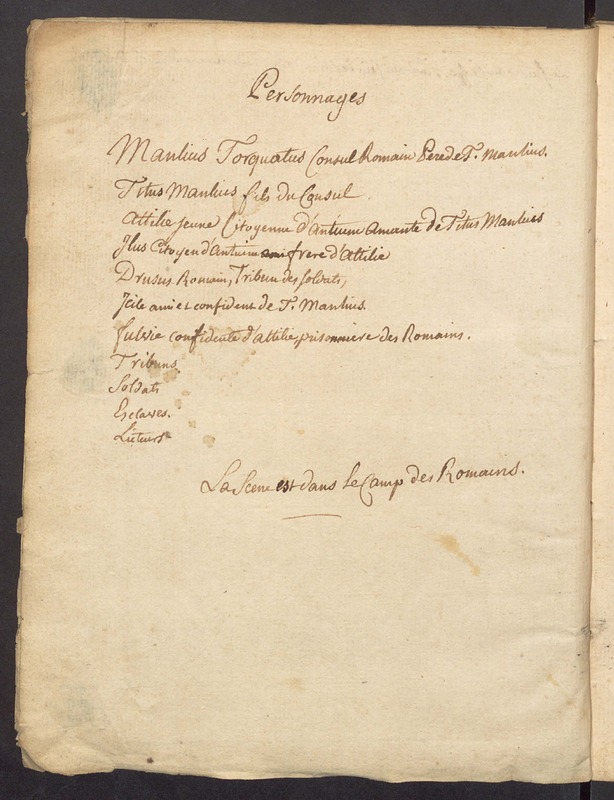 Personnages
Manlius Torquatus Consul Romain Pere de T. Manlius.
Titus Manlius fils du Consul
Attilie jeune Citoyenne d'Antium Amante de Titus Manlius
Jlus Citoyen d'Antium frere d'Attilie
Drusus Romain, Tribun des soldats,
Jcile ami et confident de T. Manlius.
fulvie confidente d'attilie, prisonniere des Romains.
Tribuns
Soldats
Esclaves.
Licteurs
La Scene est dans le Camp des Romains.